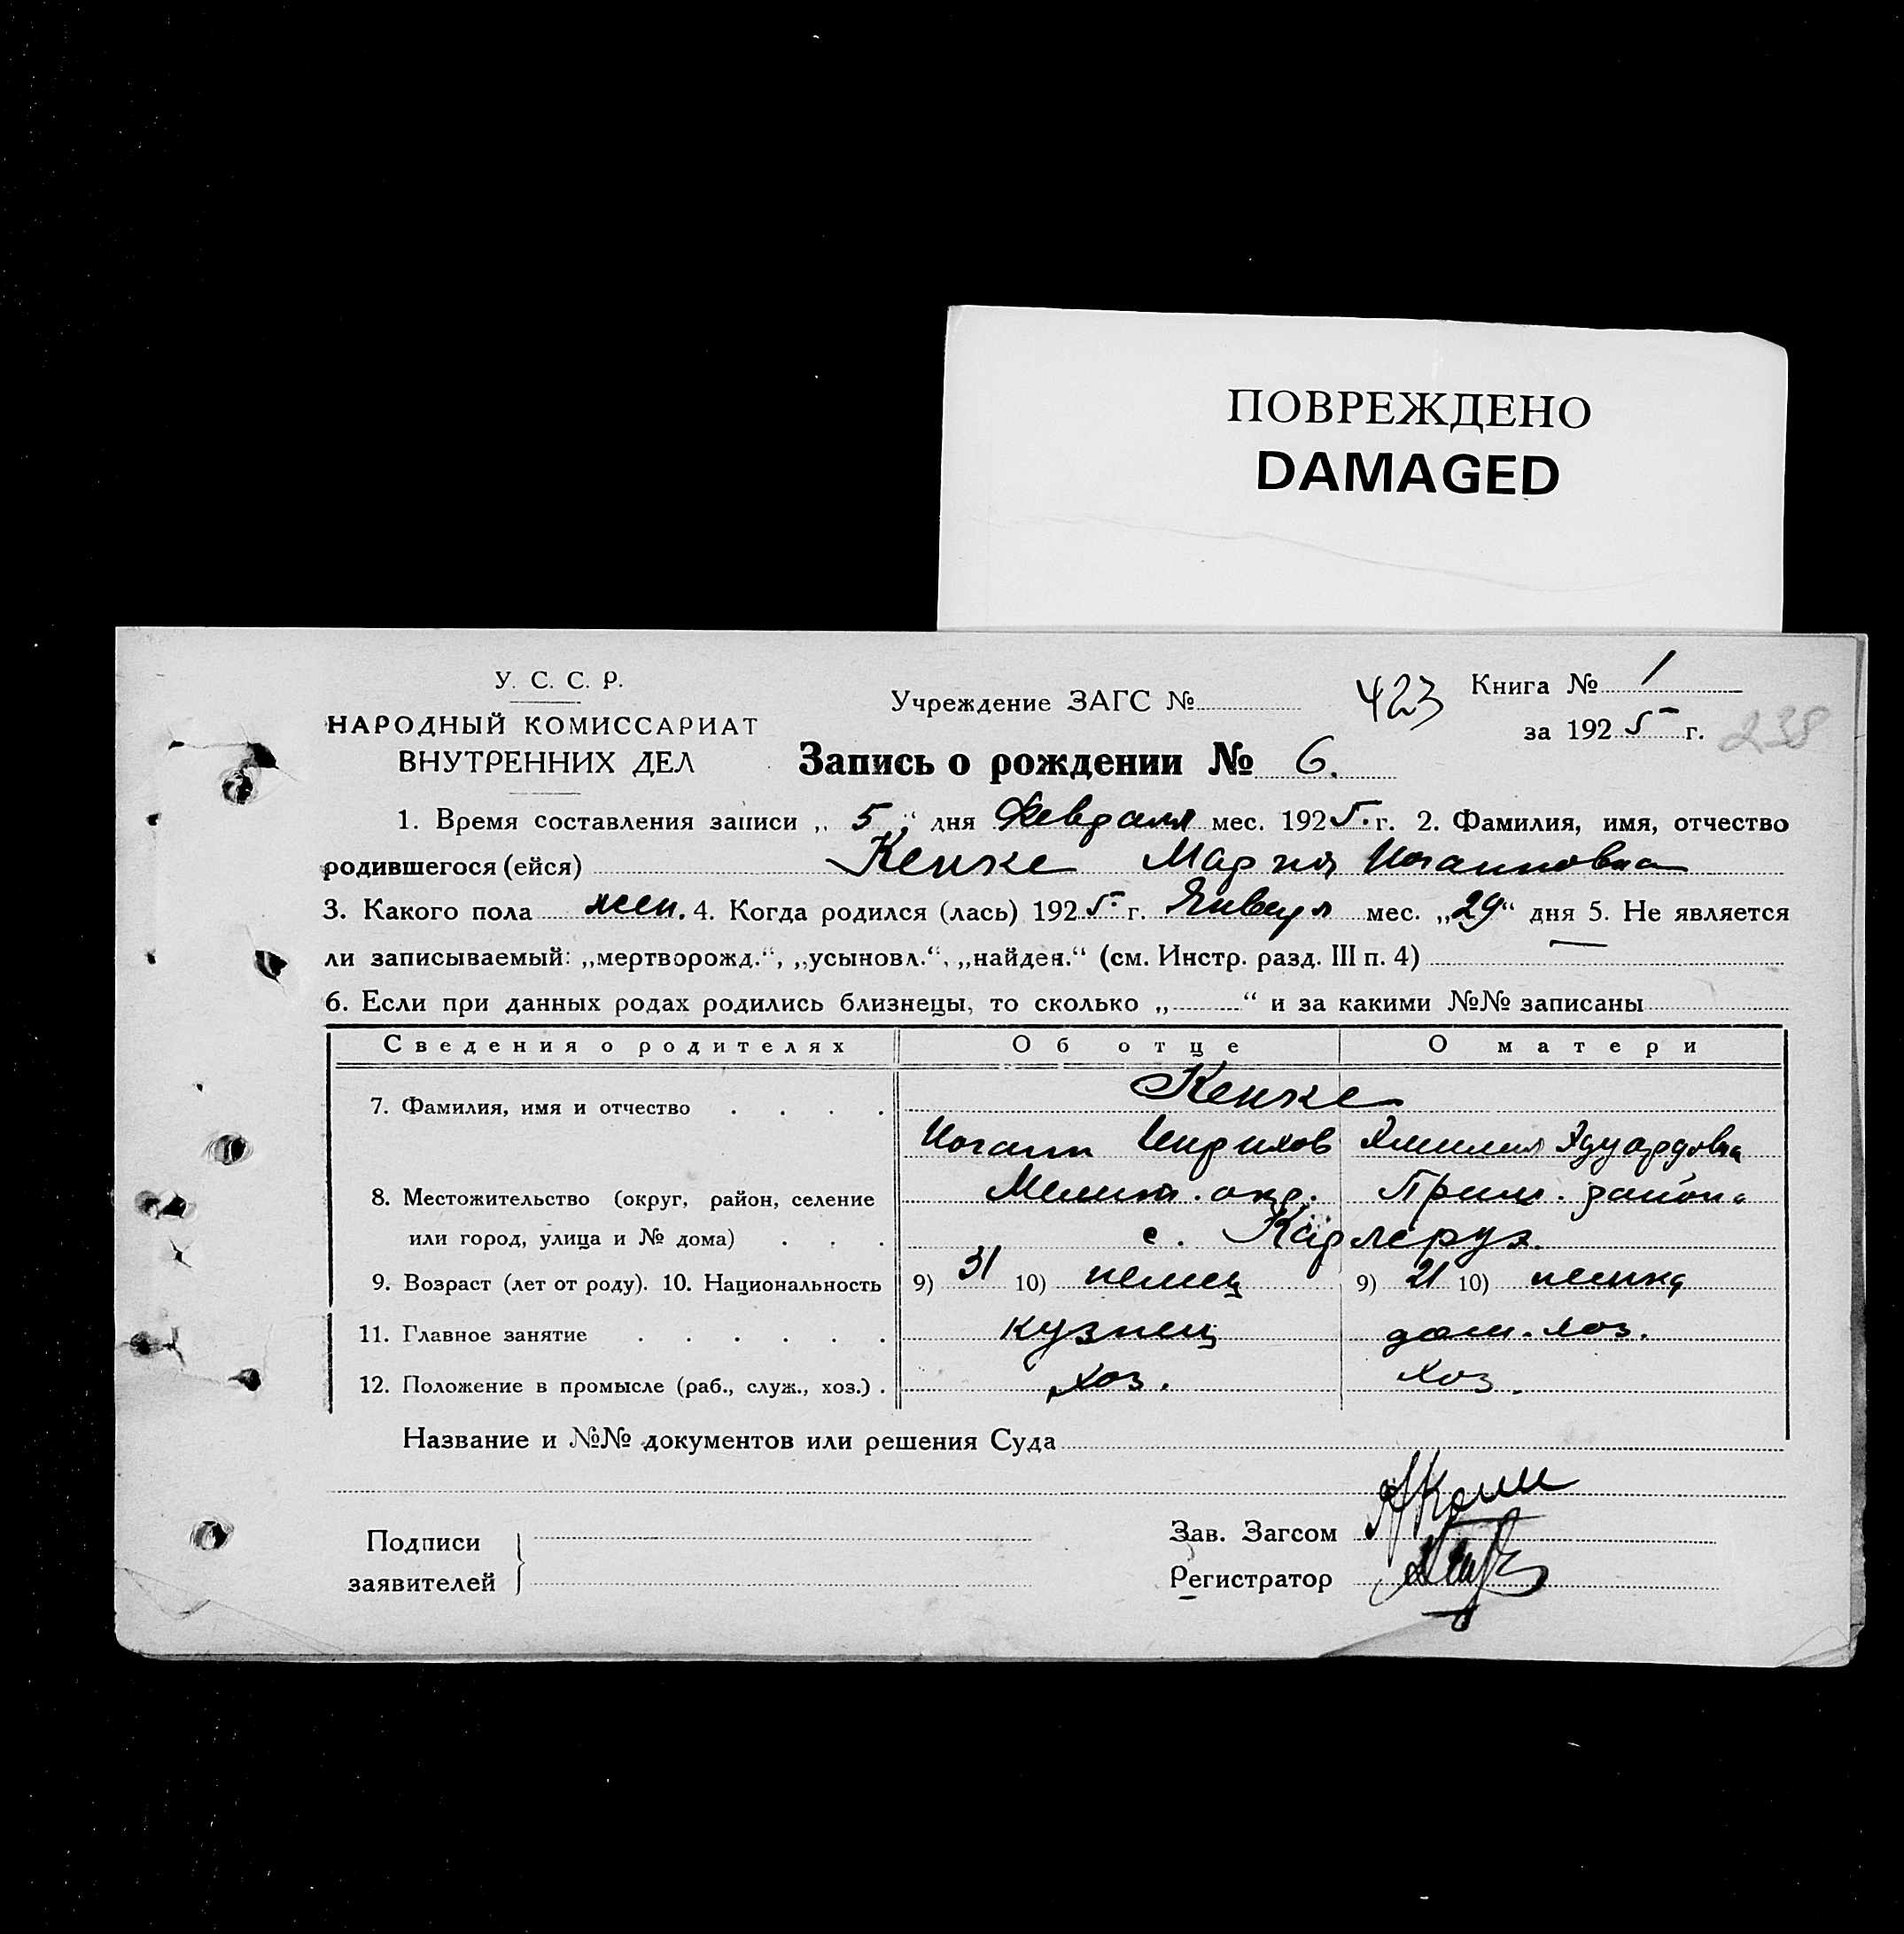 ПОВРЕЖДЕНО
DAMAGED
У. С. С. Р.
НАРОДНЫЙ КОМИССАРИАТ
ВНУТРЕННИХ ДЕЛ
Учреждение ЗАГС №
423
Книга № 1
за 1925 г.
238
Запись о рождении № 6.
1. Время составления записи „ 5 “ дня Февраля мес. 1925. г. 2. Фамилия, имя, отчество
родившегося (ейся) Кенке Мария Иоганновна
3. Какого пола жен. 4. Когда родился (лась) 1925 г. Января мес. „29“ дня 5. Не является
ли записываемый: „мертворожд.“, „усыновл.“, „найден.“ (см. Инстр. разд. III п. 4) —
6. Если при данных родах родились близнецы, то сколько „ “ и за какими №№ записаны
Сведения о родителях Об отце О матери
7. Фамилия, имя и отчество Кенке
Иоганн Эдуардовна
8. Местожительство (округ, район, селение Мелит. окр. Приш. район.
или город, улица и № дома) с. Карлсруэ.
9. Возраст (лет от роду). 10. Национальность 9) 31 10) немец 9) 21 10) немка
11. Главное занятие кузнец дом. хоз.
12. Положение в промысле (раб., служ., хоз.) хоз. хоз.
Название и №№ документов или решения Суда
Подписи
заявителей
Зав. Загсом
Регистратор